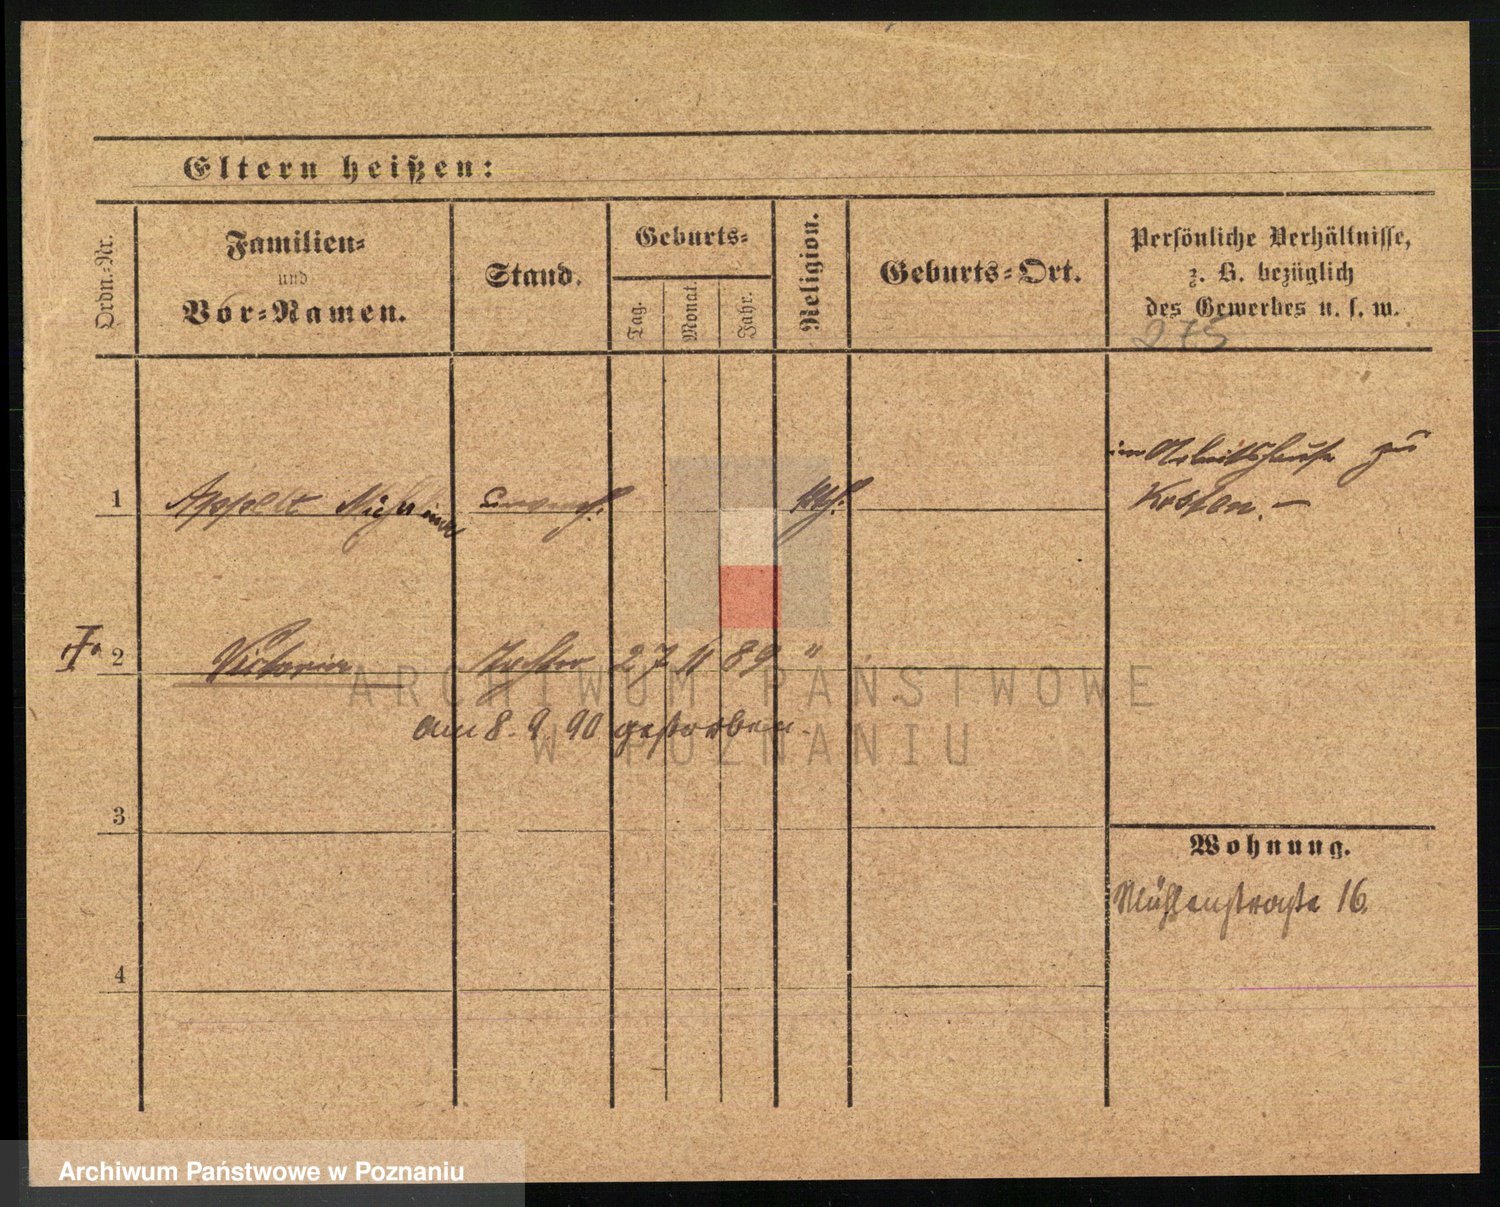 Eltern heißen:
Ordn.-Nr.
Familien-
und
Vor-Namen.
Stand.
Geburts-
Tag.
Monat.
Jahr.
Religion.
Geburts-Ort.
Persönliche Verhältnisse,
z. B. bezüglich
des Gewerbes u. s. w.
275
im Arbeitshause zu
Kosten. –
1 Appolt
2 Victoria Tochter 27 11 89 "
am 8. 9. 90 gestorben.
3
Wohnung.
Mühlenstraße 16.
4
ARCHIWUM PAŃSTWOWE
W POZNANIU
Archiwum Państwowe w Poznaniu